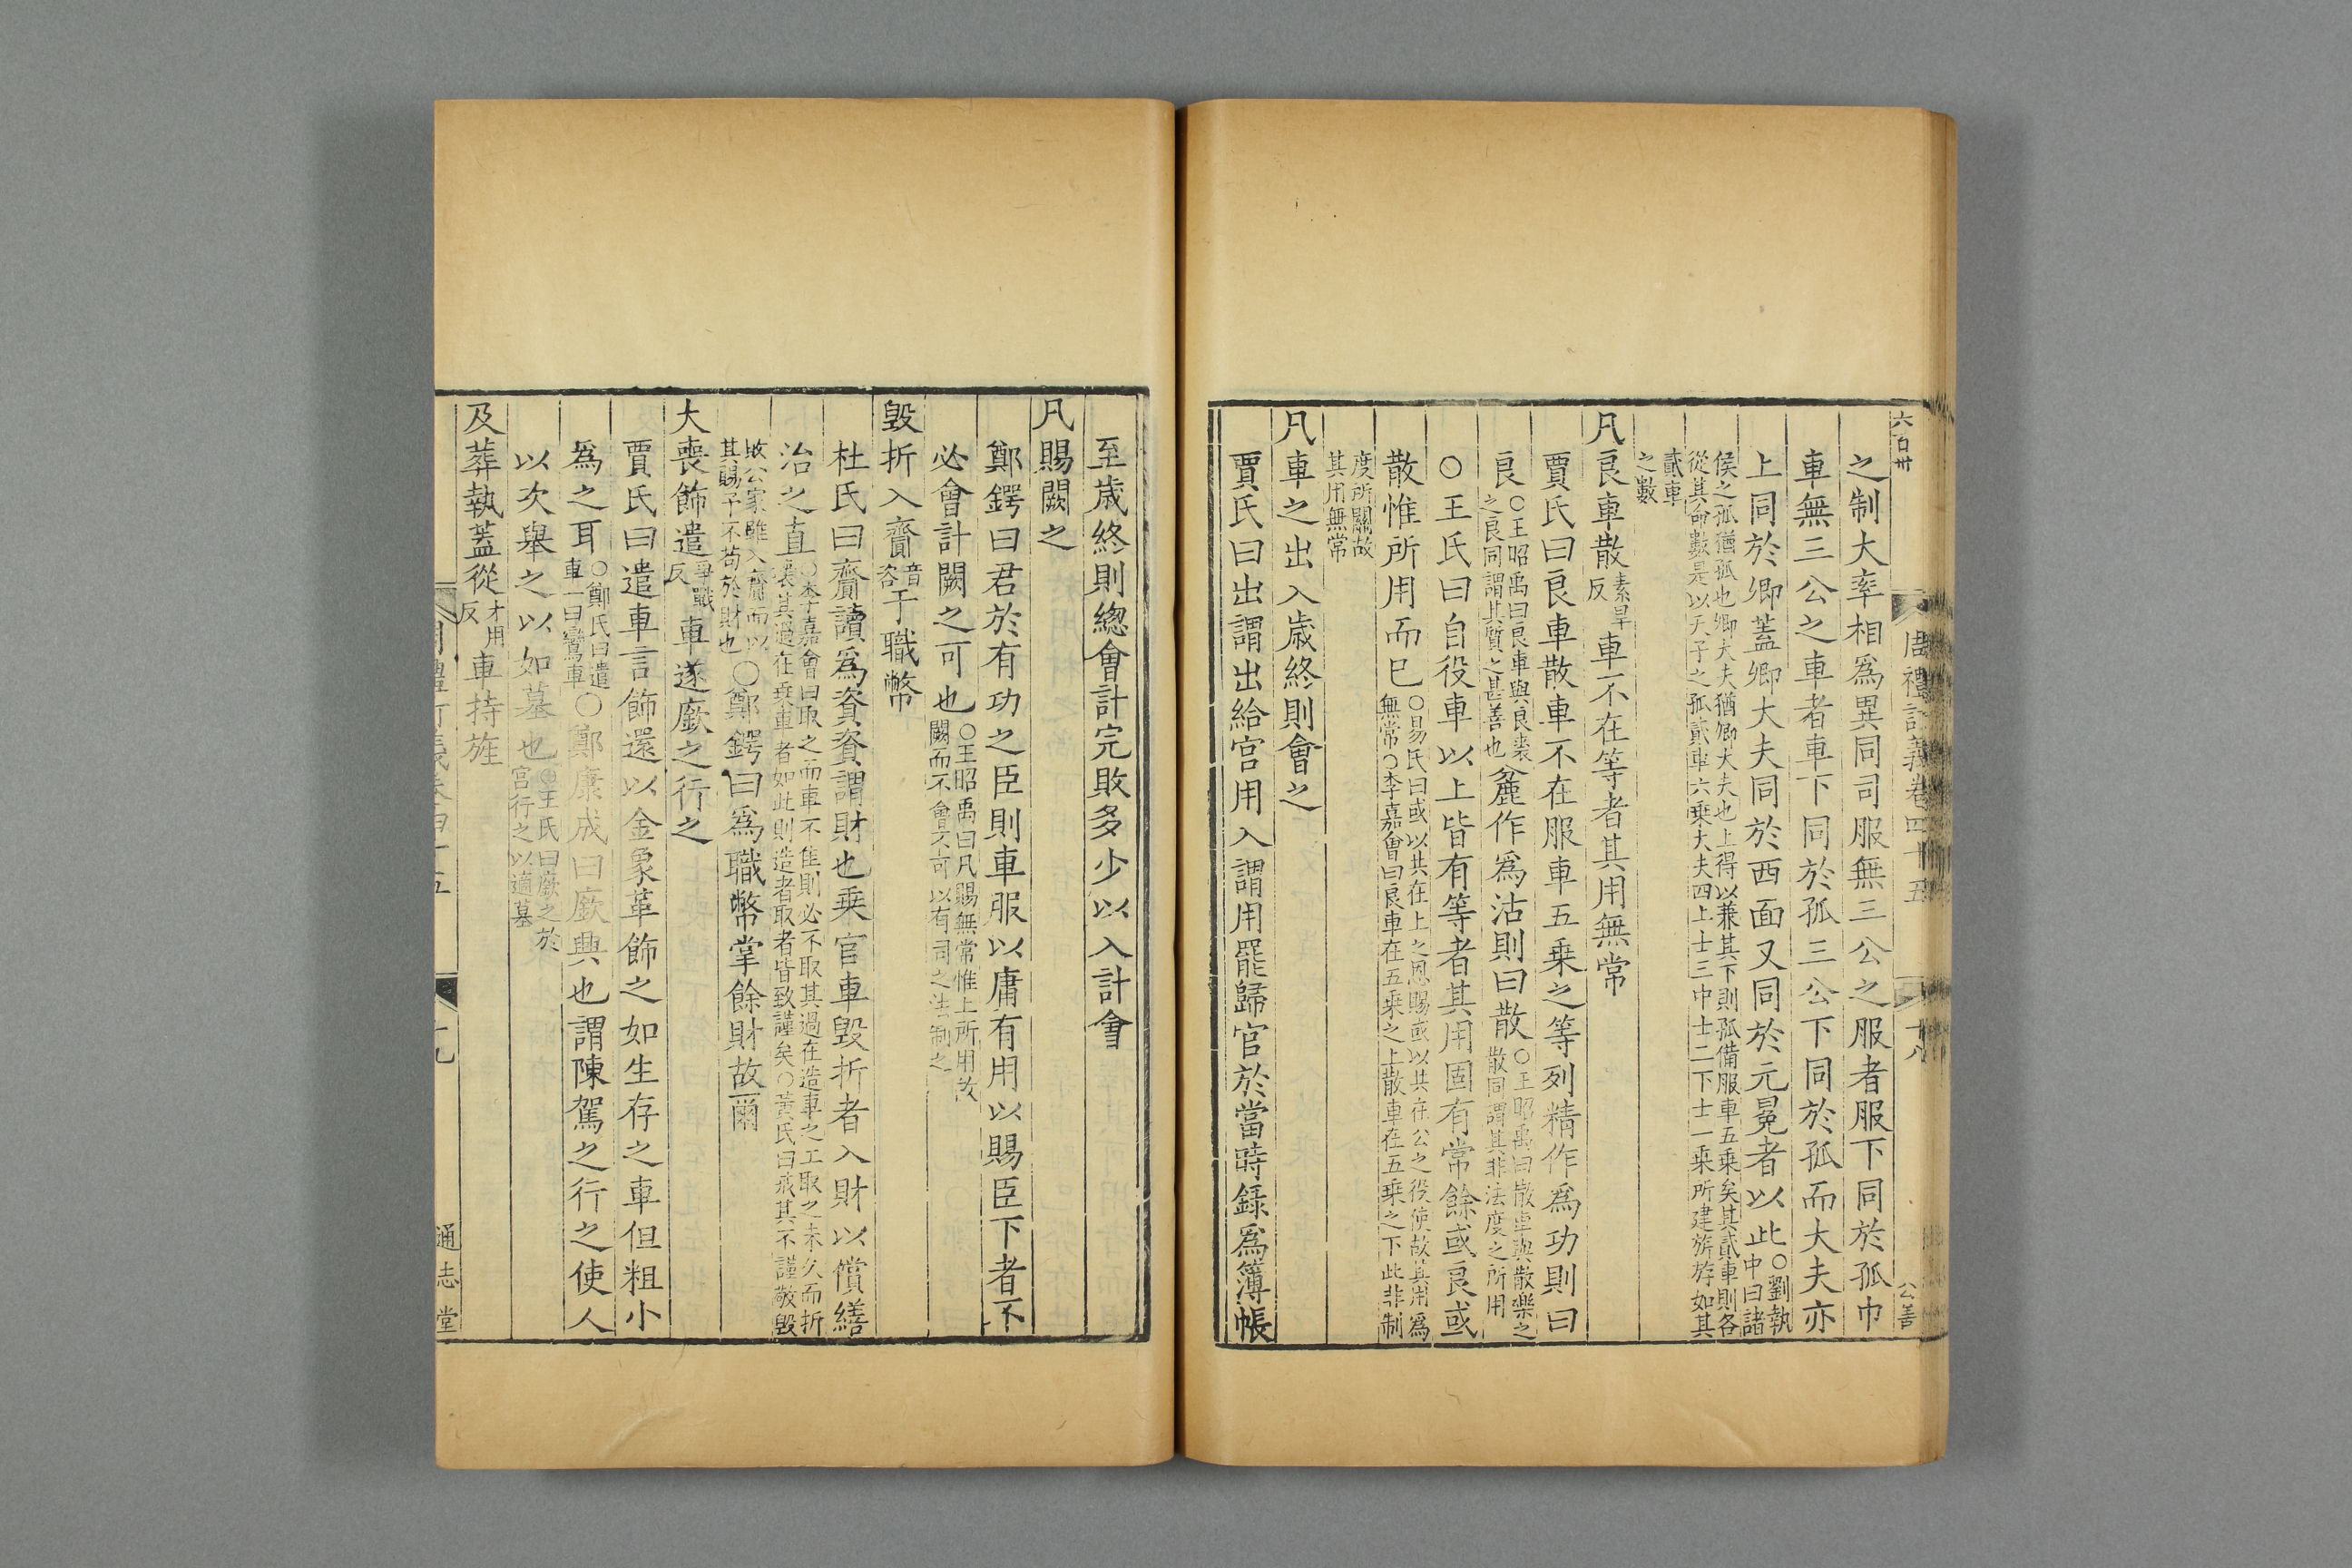 六百卅
周禮訂義卷四十五
十八
公善
之制大率相爲異同司服無三公之服者服下同於孤巾
車無三公之車者車下同於孤三公下同於孤而大夫亦
上同於卿蓋卿大夫同於西面又同於元冕者以此○劉執
中曰諸
侯之孤猶孤也卿大夫猶卿大夫也上得以兼其下則孤備服車五乗矣其貳車則各
從其命數是以天子之孤貳車六乗大夫四上士三中士二下士一乗所建旂斿如其
貳車
之數
凡良車散素旱
反車不在等者其用無常
賈氏曰良車散車不在服車五乗之等列精作爲功則曰
良○王昭禹曰良車與良裘
之良同謂其質之甚善也麄作爲沽則曰散○王昭禹曰散車與散樂之
散同謂其非法度之所用
○王氏曰自役車以上皆有等者其用固有常餘或良或
散惟所用而已○易氏曰或以共在上之恩賜或以共在公之役使故其用爲
無常○李嘉會曰良車在五乗之上散車在五乗之下此非制
度所關故
其用無常
凡車之出入歳終則會之
賈氏曰出謂出給官用入謂用罷歸官於當時錄爲簿帳
至歳終則總會計完敗多少以入計會
凡賜闕之
鄭鍔曰君於有功之臣則車服以庸有用以賜臣下者不
必會計闕之可也○王昭禹曰凡賜無常惟上所用故
闕而不會不可以有司之法制之
毀折入齎音
咨于職幣
杜氏曰齎讀爲資資謂財也乗官車毀折者入財以償繕
治之直○李嘉會曰取之而車不佳則必不取其過在造車之工取之未久而折
壊其過在乗車者如此則造者取者皆致謹矣○黄氏曰飛其不謹敬毀
敗公家雖入齎而以
其賜予不苟於財也○鄭鍔曰爲職幣掌餘財故爾
大喪飾遣弃戰
反車遂廞之行之
賈氏曰遣車言飾還以金象革飾之如生存之車但粗小
爲之耳○鄭氏曰遣
車一曰鸞車○鄭康成曰廞興也謂陳駕之行之使人
以次舉之以如墓也○王氏曰廞之於
宮行之以適墓
及葬執蓋從才用
反車持旌
十九
通志堂